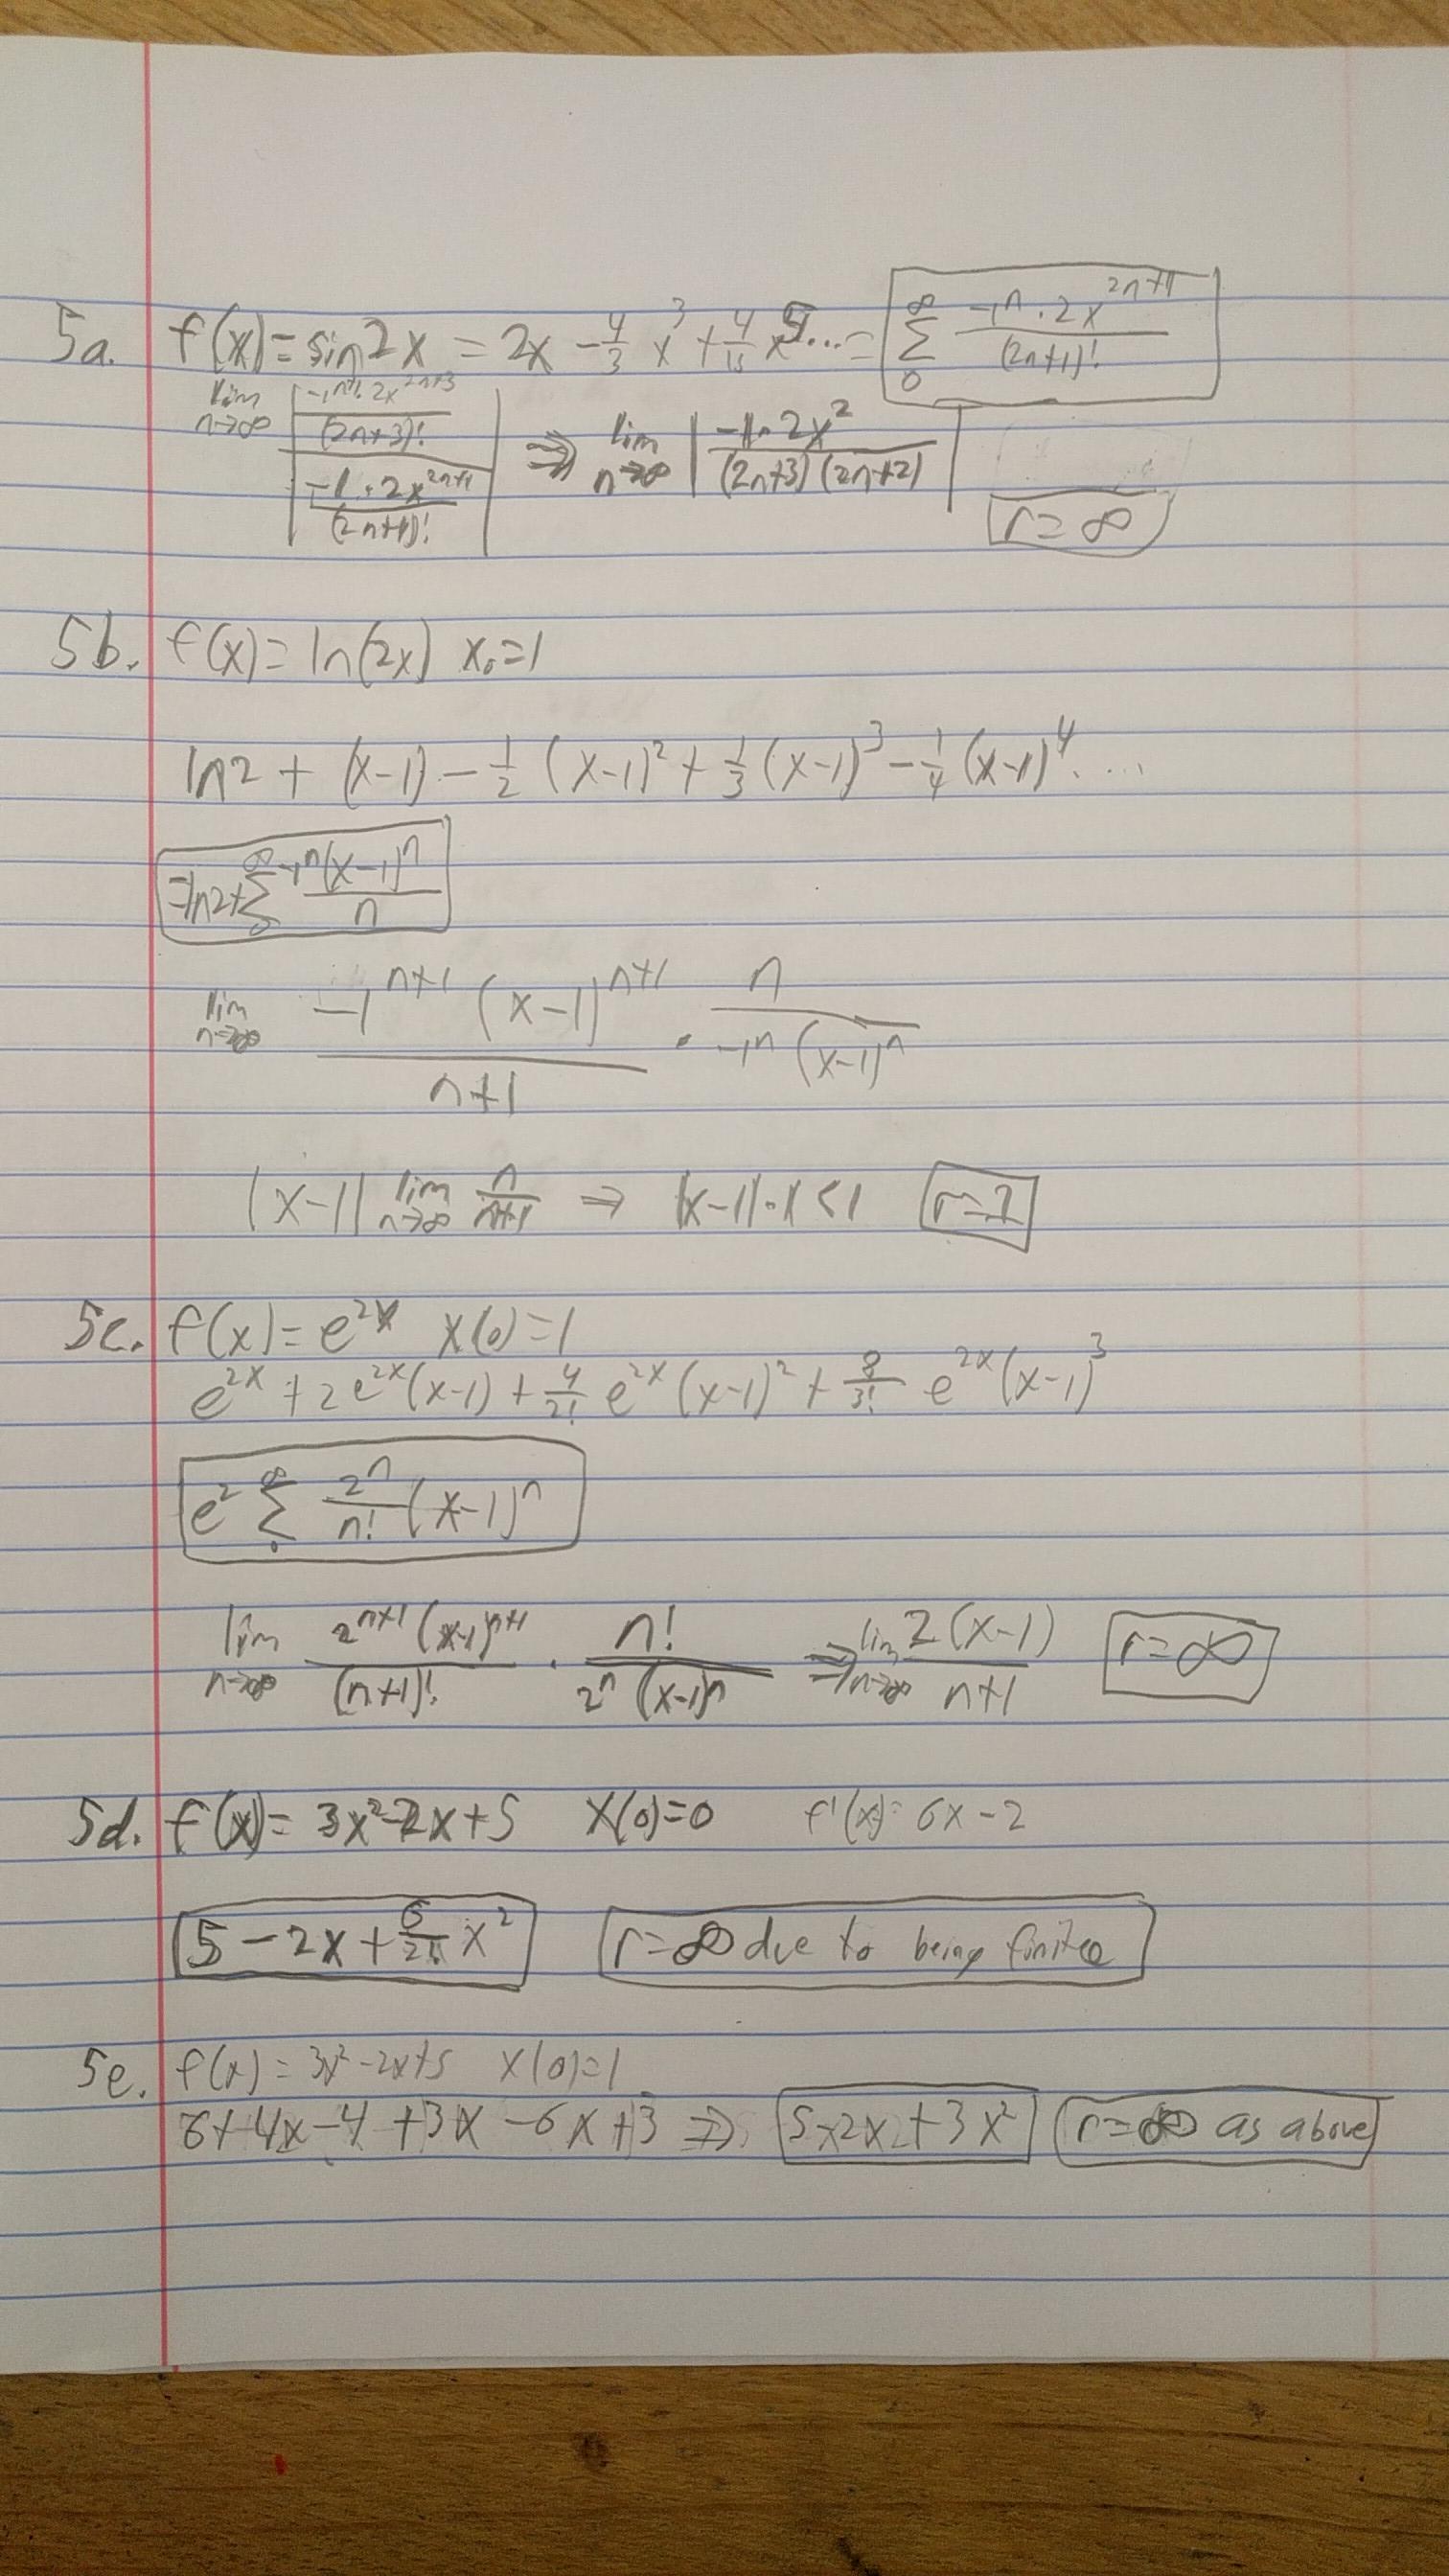 5a. f(x)=sin2x = 2x - 4/3 x^3 + 4/15 x^5... = ∑_0^∞ -1^n · 2x^{2n+1} / (2n+1)!
lim n→∞ | (-1^{n+1} · 2x^{2n+3} / (2n+3)!) / (-1 · 2x^{2n+1} / (2n+1)!) | ⇒ lim n→∞ | -1 · 2x^2 / (2n+3)(2n+2) |
r=∞
5b. f(x)=ln(2x) x_0=1
ln2 + (x-1) - 1/2 (x-1)^2 + 1/3 (x-1)^3 - 1/4 (x-1)^4 ....
=ln2+∑_0^∞ -1^n (x-1)^n / n
lim n→∞ -1^{n+1} (x-1)^{n+1} / n+1 · n / -1^n (x-1)^n
|x-1| lim n→∞ n/n+1 ⇒ |x-1|·1<1 r=1
5c. f(x)=e^{2x} x(0)=1
e^{2x} + 2e^{2x}(x-1) + 4/2! e^{2x}(x-1)^2 + 8/3! e^{2x}(x-1)^3
e^2 ∑_0^∞ 2^n/n! (x-1)^n
lim n→∞ 2^{n+1}(x-1)^{n+1} / (n+1)! · n! / 2^n (x-1)^n ⇒ lim n→∞ 2(x-1) / n+1 r=∞
5d. f(x)= 3x^2-2x+5 x(0)=0 f'(x)= 6x-2
5-2x+ 6/2! x^2 r=∞ due to being finite
5e. f(x)=3x^2-2x+5 x(0)=1
6+4x-4+3x-6x+3 ⇒ 5-2x+3x^2 r=∞ as above